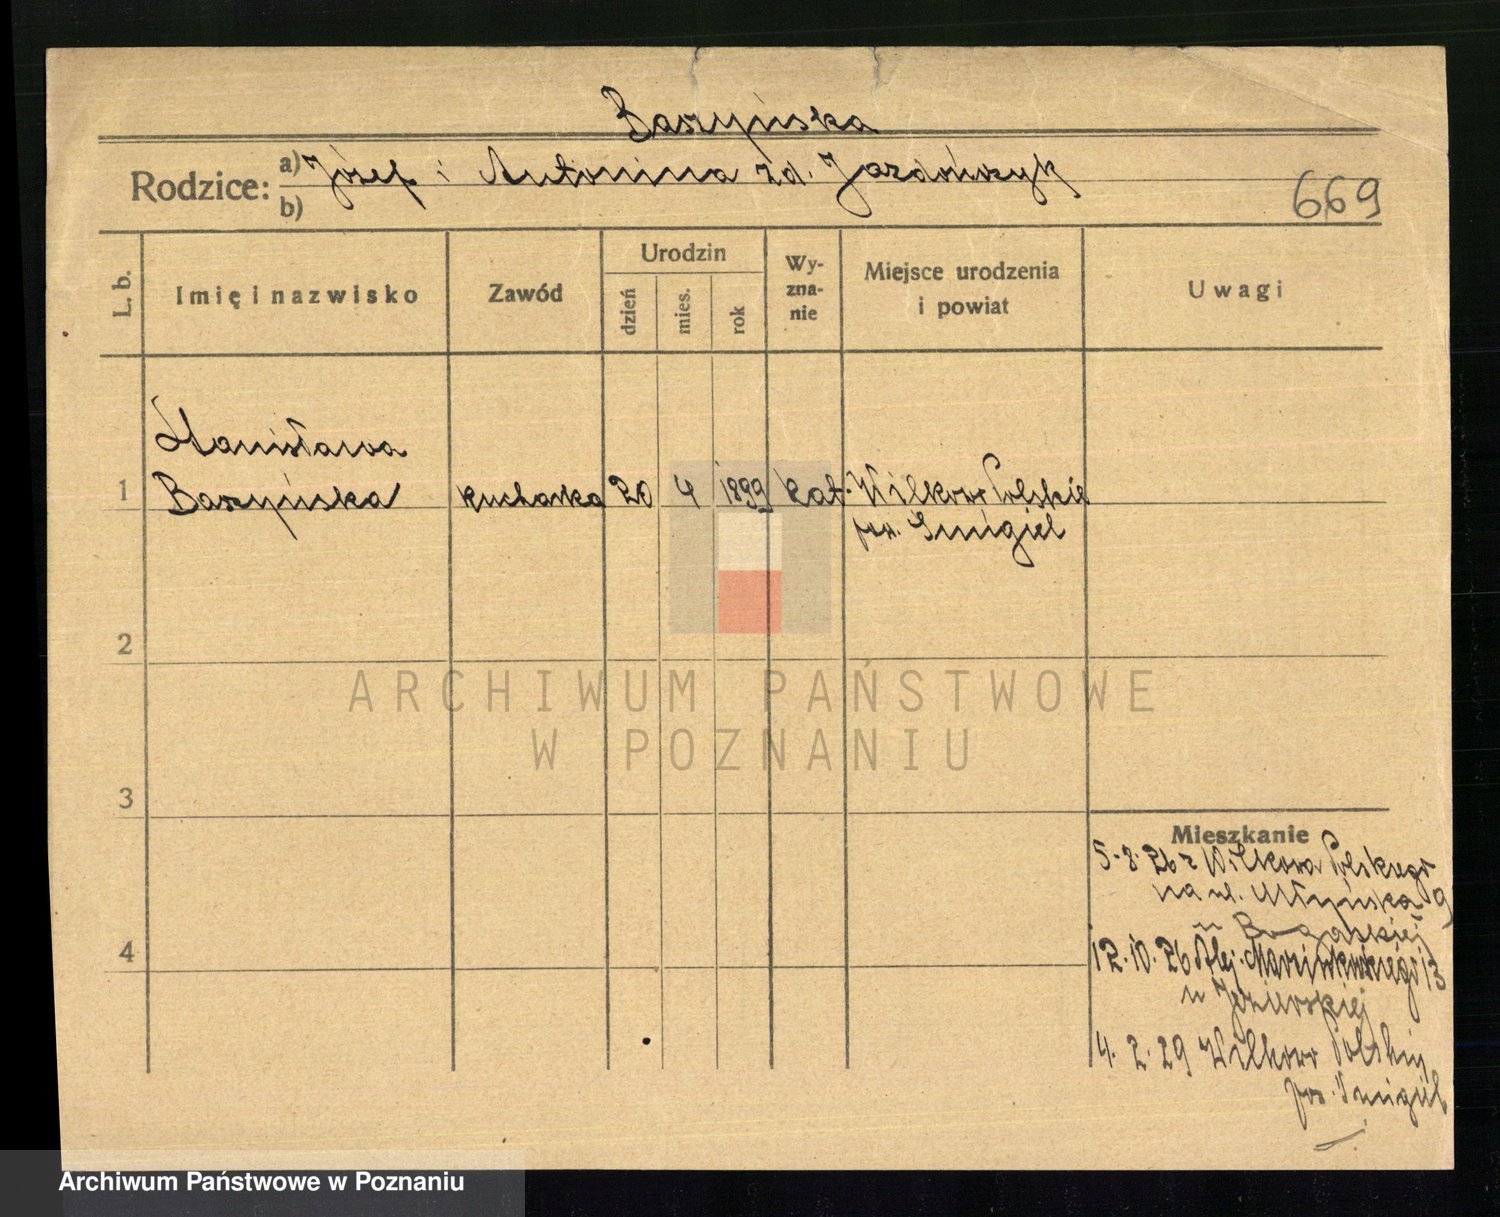 Baszyńska
Rodzice: a) Józef i Antonina zd. Jazdończyk
b)
669
L. b.
Imię i nazwisko
Zawód
Urodzin
dzień
mies.
rok
Wy-
zna-
nie
Miejsce urodzenia
i powiat
Uwagi
Stanisława
1 Baszyńska kucharka 20 4 1899 kat. Wilkowo Polskie
pow. Śmigiel
2
ARCHIWUM PAŃSTWOWE
W POZNANIU
3
Mieszkanie
5.8.26 z Wilkowa Polskiego
na ul. Młyńska 9
4
12.10.26 Alej. Marcinkowskiego 13
u Jezierskiej
4.2.29 Wilkowo Polskie
pow. Śmigiel
Archiwum Państwowe w Poznaniu